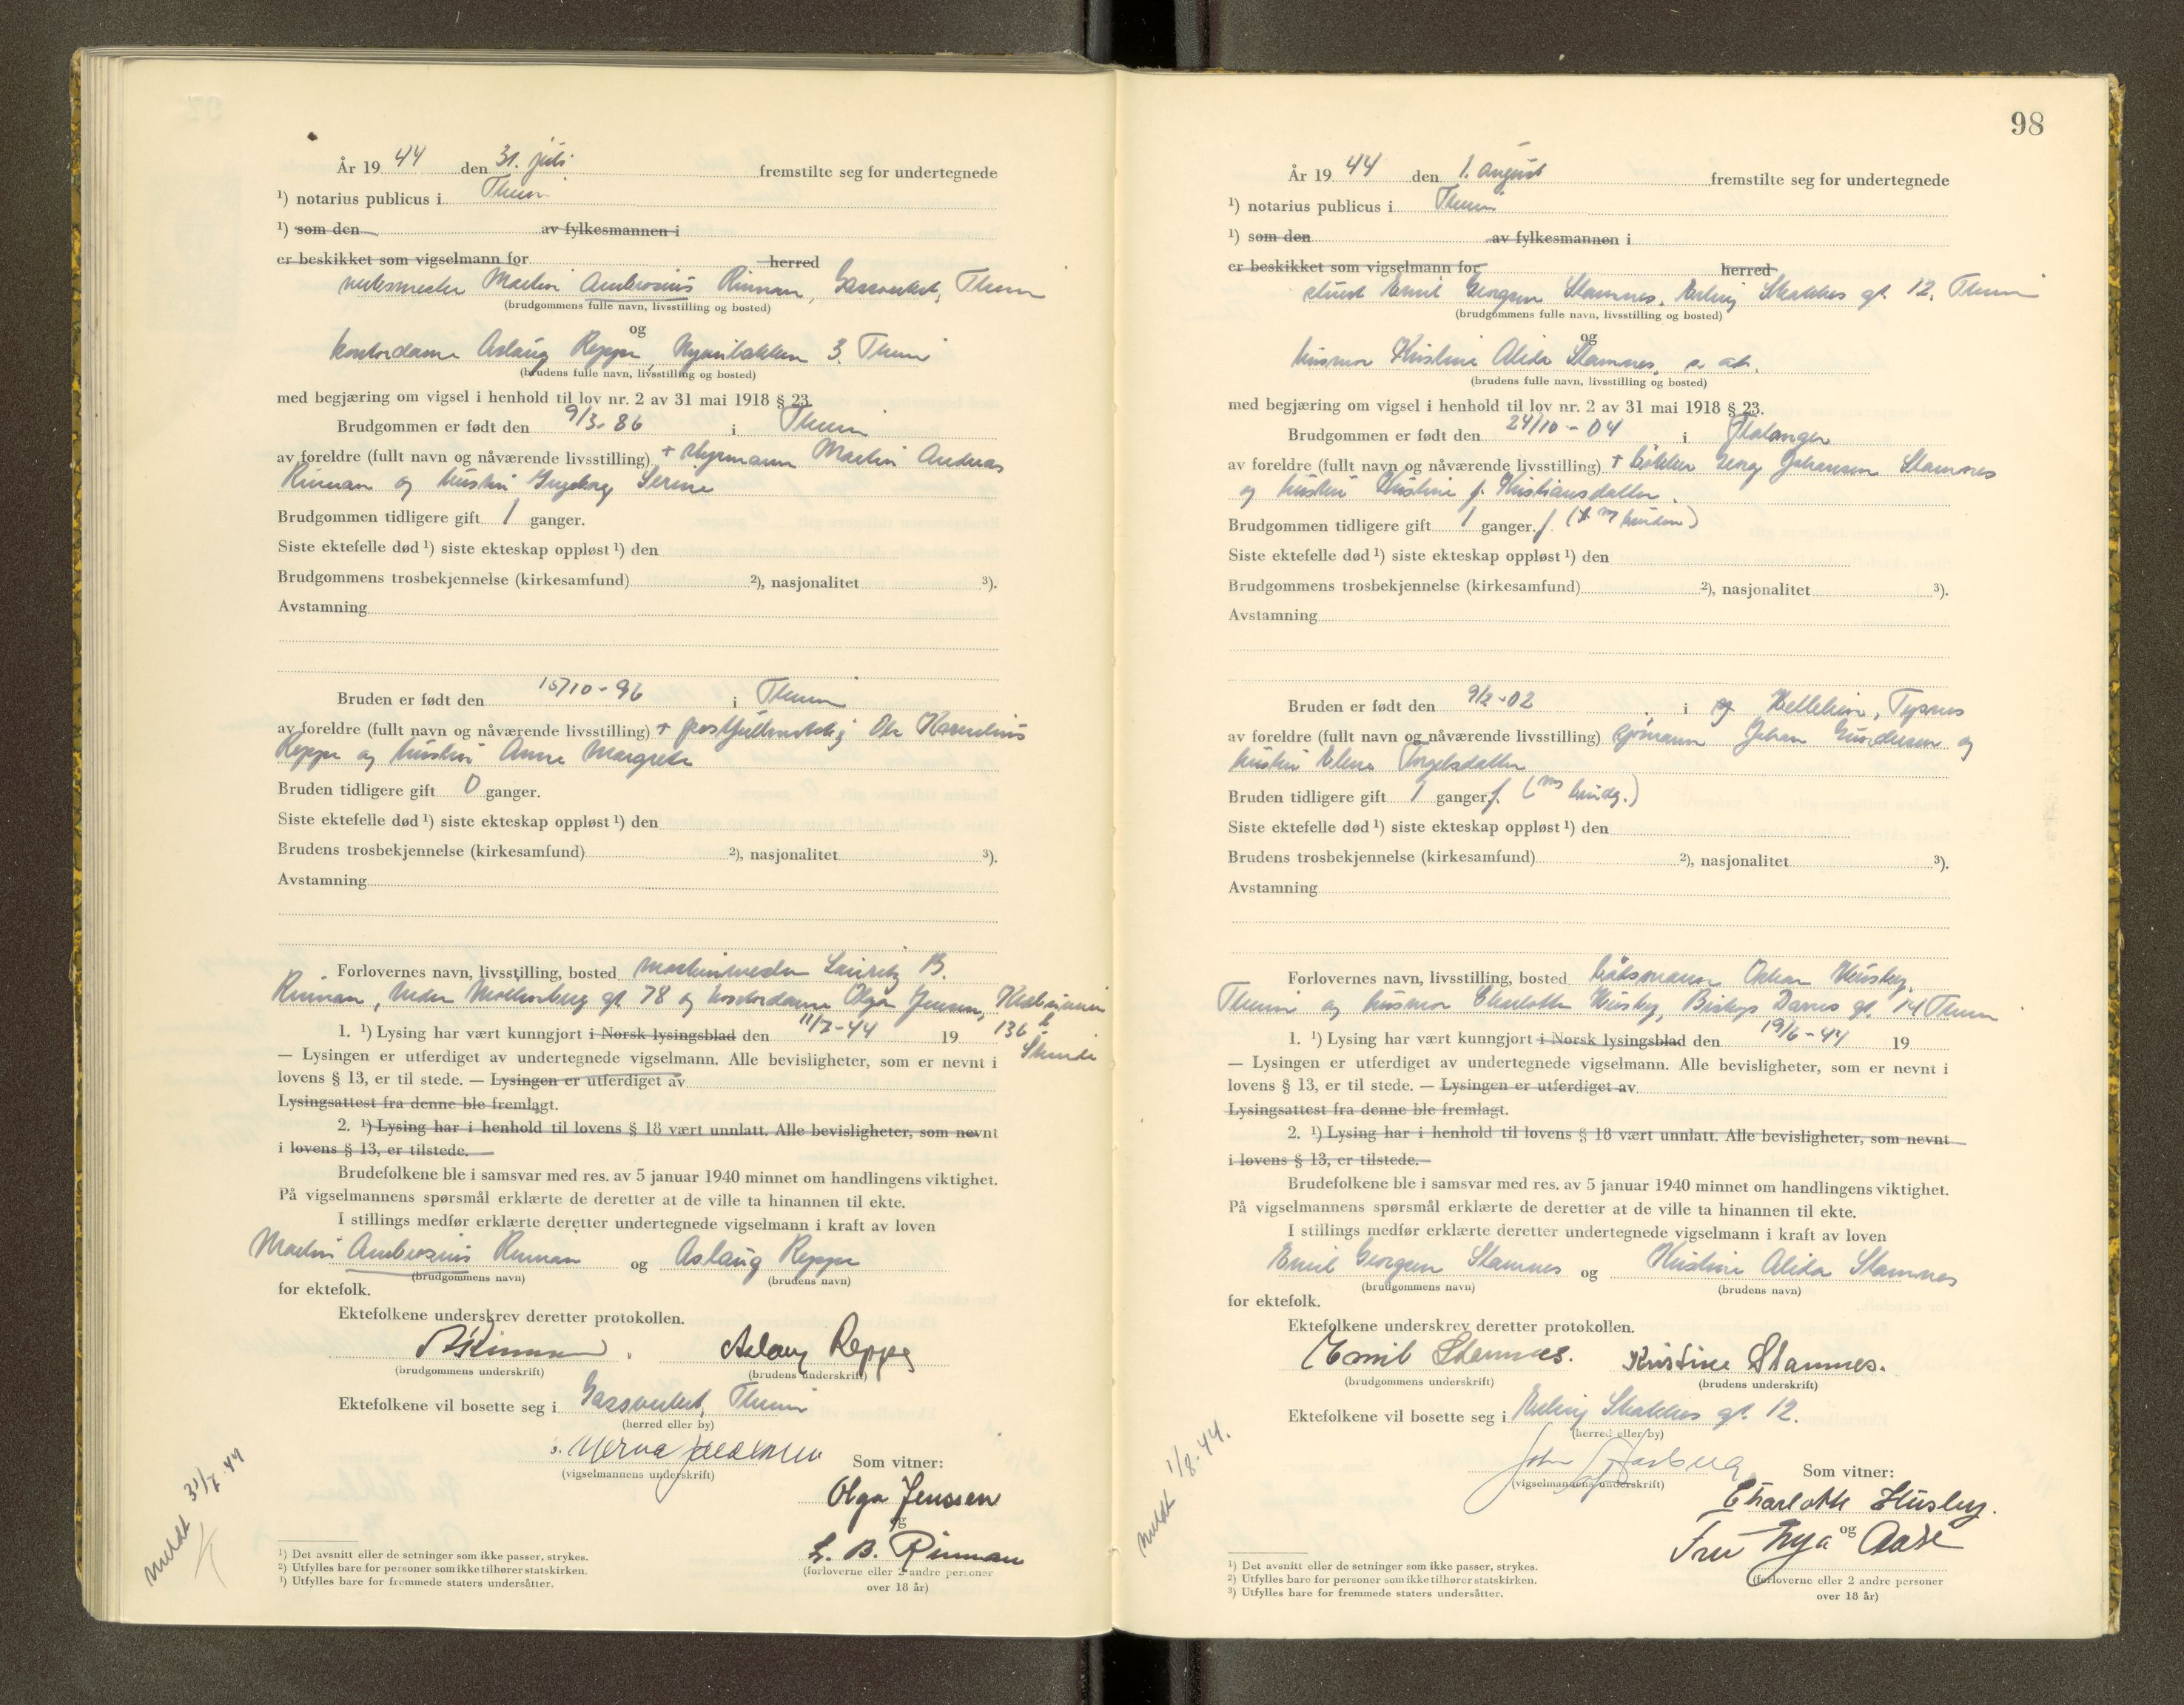 År 19 44 den 31. juli fremstilte seg for undertegnede
¹) notarius publicus i Thein
¹) som den av fylkesmannen i
er beskikket som vigselmann for herred
Martin Ambrosius Rinnan, Gassverket,
(brudgommens fulle navn, livsstilling og bosted)
og
kontordame Aslaug Reppe, 3,
(brudens fulle navn, livsstilling og bosted)
med begjæring om vigsel i henhold til lov nr. 2 av 31 mai 1918 § 23
Brudgommen er født den 9/3-86 i
av foreldre (fullt navn og nåværende livsstilling) + styrmann Martin Andreas
Rinnan og hustru Ingeborg Serine
Brudgommen tidligere gift 1 ganger.
Siste ektefelle død ¹) siste ekteskap oppløst ¹) den
Brudgommens trosbekjennelse (kirkesamfund) ²), nasjonalitet ³).
Avstamning
Bruden er født den 15/10-96 i
av foreldre (fullt navn og nåværende livsstilling) + postfullmektig Ole Kornelius
Reppe og hustru Anne Margrete
Bruden tidligere gift 0 ganger.
Siste ektefelle død ¹) siste ekteskap oppløst ¹) den
Brudens trosbekjennelse (kirkesamfund) ²), nasjonalitet ³).
Avstamning
Forlovernes navn, livsstilling, bosted Lauritz B.
Rinnan, Nedre Møllenberg gt. 78 og kontordame Olga Jensen,
1. ¹) Lysing har vært kunngjort i Norsk lysingsblad den 11/7-44 19 136 b
— Lysingen er utferdiget av undertegnede vigselmann. Alle bevisligheter, som er nevnt i
lovens § 13, er til stede. — Lysingen er utferdiget av
Lysingsattest fra denne ble fremlagt.
2. ¹) Lysing har i henhold til lovens § 18 vært unnlatt. Alle bevisligheter, som nevnt
i lovens § 13, er tilstede.
Brudefolkene ble i samsvar med res. av 5 januar 1940 minnet om handlingens viktighet.
På vigselmannens spørsmål erklærte de deretter at de ville ta hinannen til ekte.
I stillings medfør erklærte deretter undertegnede vigselmann i kraft av loven
Martin Ambrosius Rinnan og Aslaug Reppe
(brudgommens navn) (brudens navn)
for ektefolk.
Ektefolkene underskrev deretter protokollen.
Aslaug Reppe
(brudgommens underskrift) (brudens underskrift)
Ektefolkene vil bosette seg i Gassverket,
(herred eller by)
(vigselmannens underskrift) Som vitner:
Olga Jenssen
og
L. B. Rinnan
(forloverne eller 2 andre personer
over 18 år)
meldt 31/7-44
¹) Det avsnitt eller de setninger som ikke passer, strykes.
²) Utfylles bare for personer som ikke tilhører statskirken.
³) Utfylles bare for fremmede staters undersåtter.
98
År 19 44 den 1. august fremstilte seg for undertegnede
¹) notarius publicus i
¹) som den av fylkesmannen i
er beskikket som vigselmann for herred
Emil Georgsen Stamnes, Erling Skakkes gt. 12,
(brudgommens fulle navn, livsstilling og bosted)
og
husmor Kristine Alida Stamnes, s. st.
(brudens fulle navn, livsstilling og bosted)
med begjæring om vigsel i henhold til lov nr. 2 av 31 mai 1918 § 23.
Brudgommen er født den 24/10-04 i
av foreldre (fullt navn og nåværende livsstilling) + Georg Johansen Stamnes
og hustru Kristine f. Kristiansdatter.
Brudgommen tidligere gift 1 ganger. f. (m bruden)
Siste ektefelle død ¹) siste ekteskap oppløst ¹) den
Brudgommens trosbekjennelse (kirkesamfund) ²), nasjonalitet ³).
Avstamning
Bruden er født den 9/2-02 i
av foreldre (fullt navn og nåværende livsstilling) Johan Gundersen og
hustru Elene
Bruden tidligere gift 1 ganger f. (m brudg.)
Siste ektefelle død ¹) siste ekteskap oppløst ¹) den
Brudens trosbekjennelse (kirkesamfund) ²), nasjonalitet ³).
Avstamning
Forlovernes navn, livsstilling, bosted båtsmann Oskar Husby,
og husmor Charlotte Husby, Biskop Darres gt. 14
1. ¹) Lysing har vært kunngjort i Norsk lysingsblad den 19/6-44 19
— Lysingen er utferdiget av undertegnede vigselmann. Alle bevisligheter, som er nevnt i
lovens § 13, er til stede. — Lysingen er utferdiget av
Lysingsattest fra denne ble fremlagt.
2. ¹) Lysing har i henhold til lovens § 18 vært unnlatt. Alle bevisligheter, som nevnt
i lovens § 13, er tilstede.
Brudefolkene ble i samsvar med res. av 5 januar 1940 minnet om handlingens viktighet.
På vigselmannens spørsmål erklærte de deretter at de ville ta hinannen til ekte.
I stillings medfør erklærte deretter undertegnede vigselmann i kraft av loven
Emil Georgsen Stamnes og Kristine Alida Stamnes
(brudgommens navn) (brudens navn)
for ektefolk.
Ektefolkene underskrev deretter protokollen.
Emil Stamnes. Kristine Stamnes.
(brudgommens underskrift) (brudens underskrift)
Ektefolkene vil bosette seg i Erling Skakkes gt. 12.
(herred eller by)
(vigselmannens underskrift) Som vitner:
Charlotte Husby.
og
(forloverne eller 2 andre personer
over 18 år)
meldt 1/8-44.
¹) Det avsnitt eller de setninger som ikke passer, strykes.
²) Utfylles bare for personer som ikke tilhører statskirken.
³) Utfylles bare for fremmede staters undersåtter.